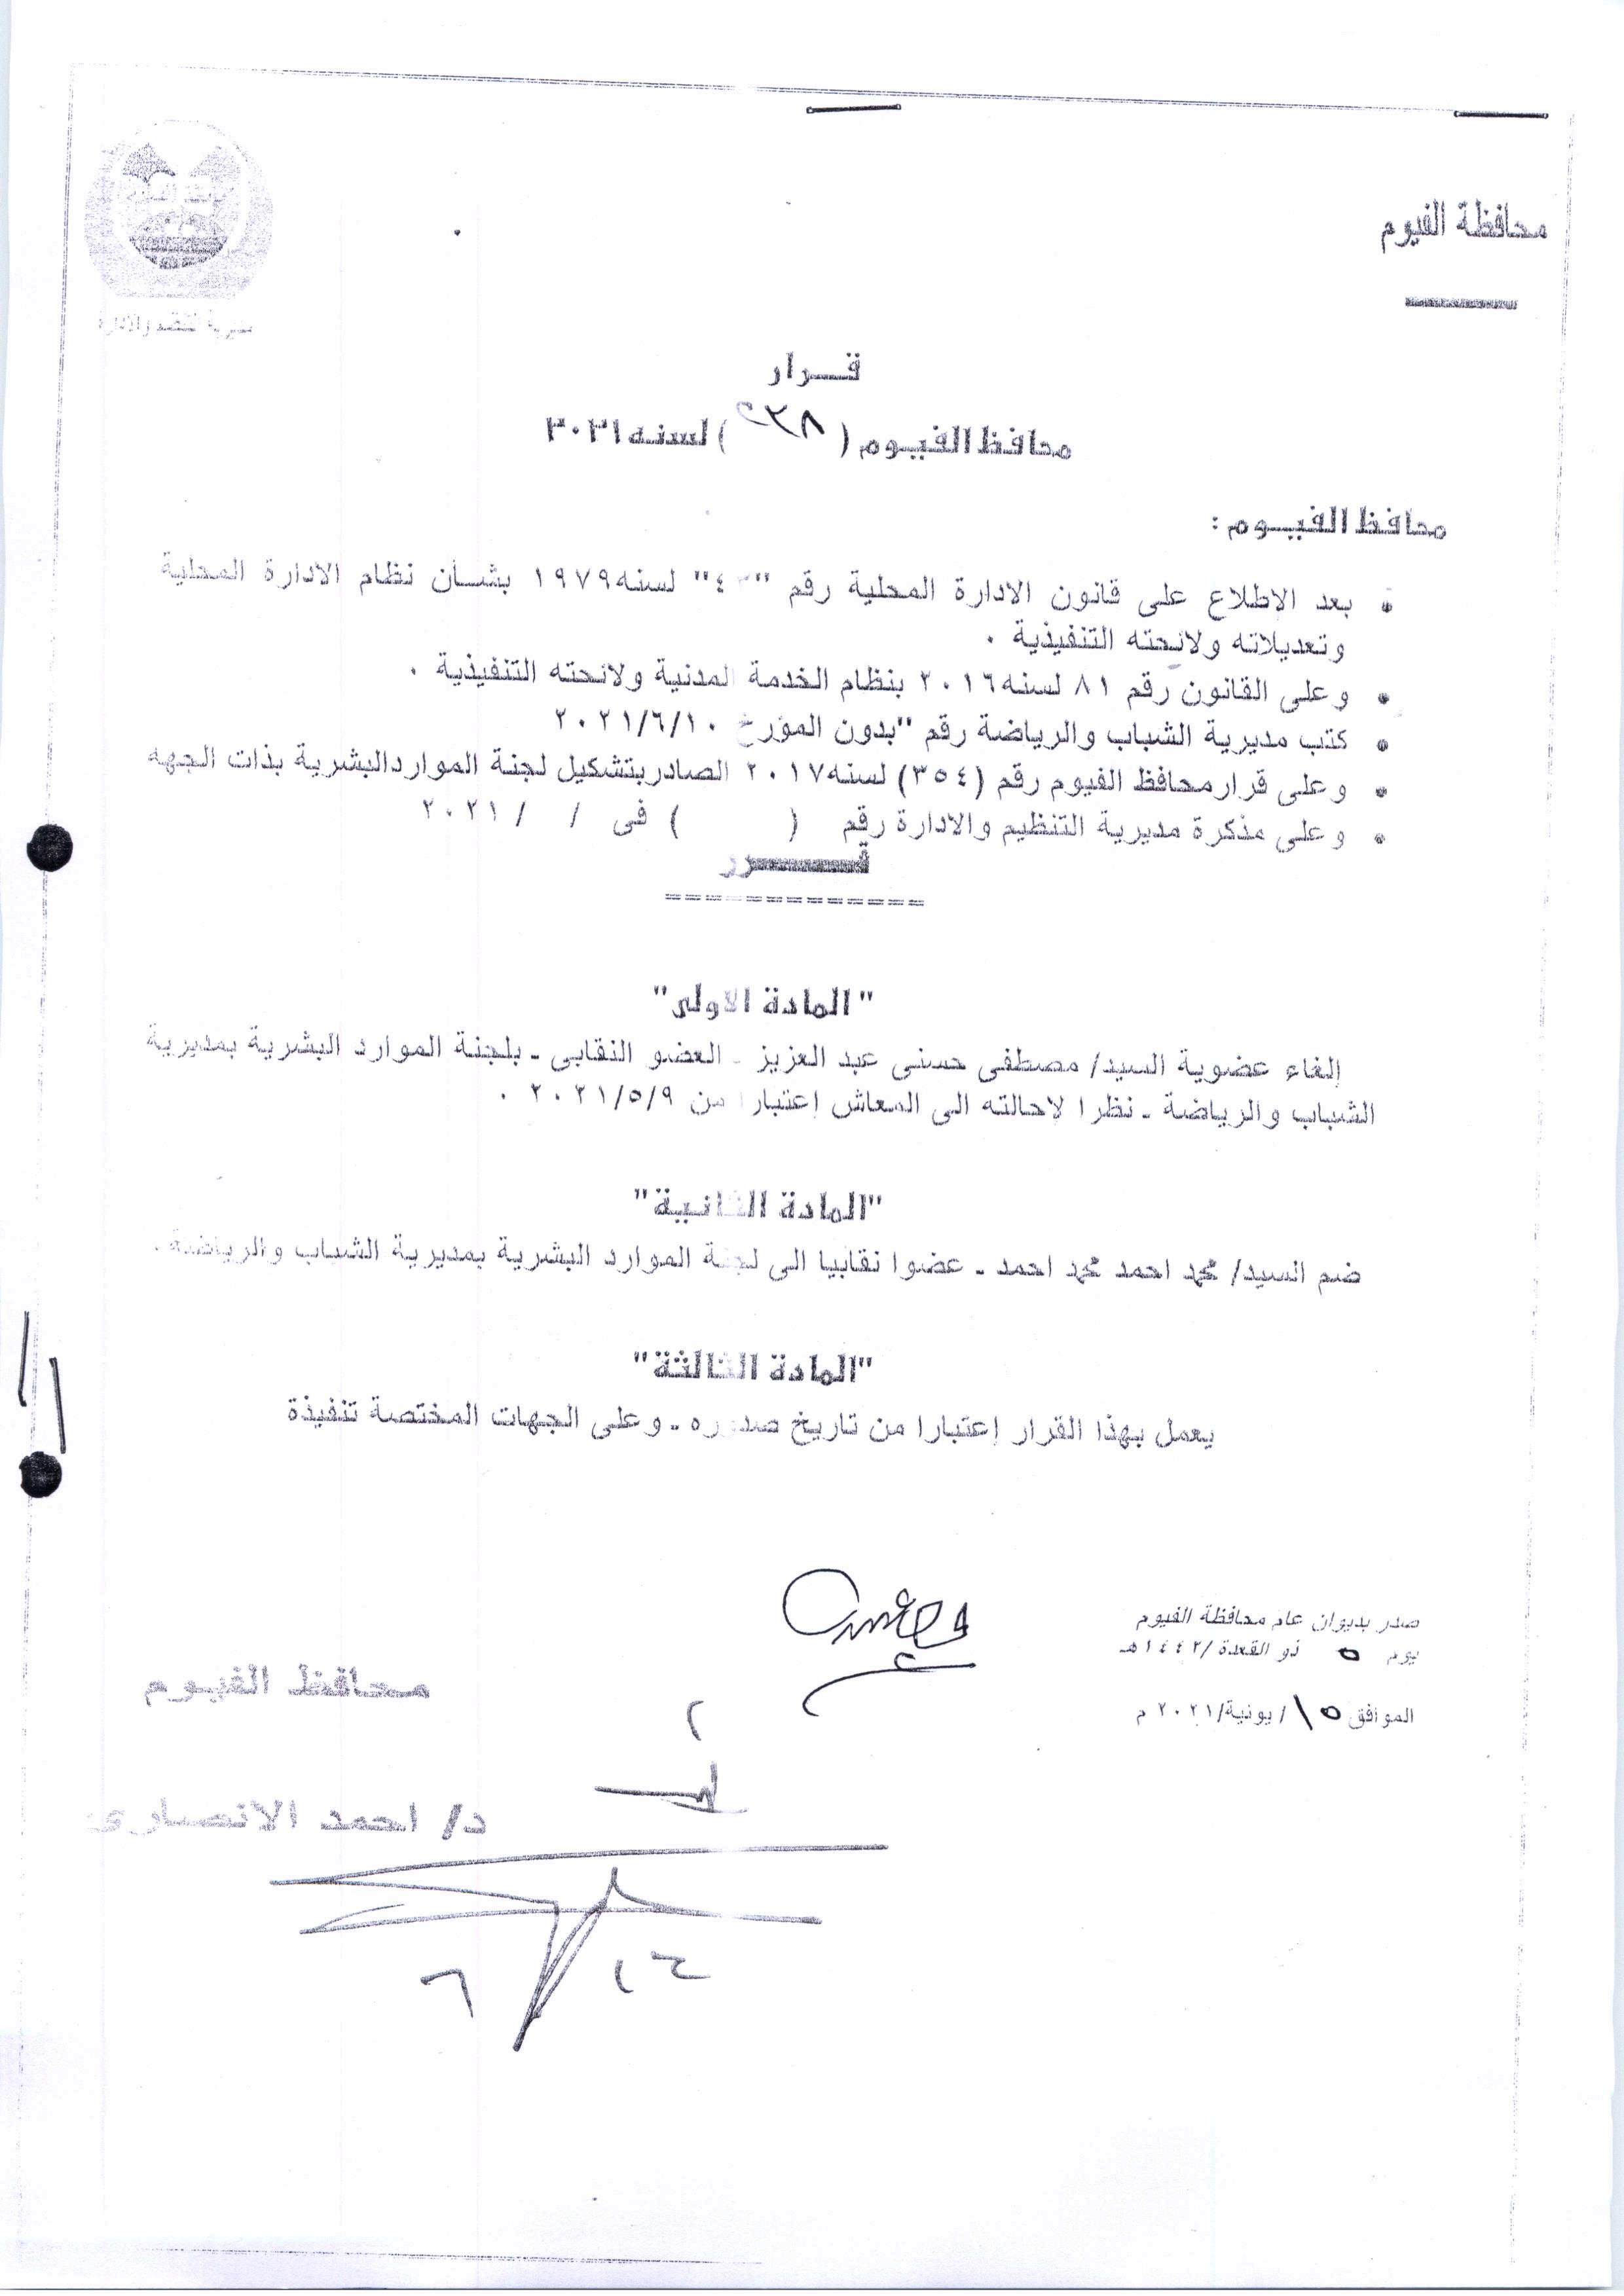 محافظة الفيوم
مديرية التنظيم والادارة
قـــرار
محافظ الفيــوم ( ٢٣٨ ) لسنه ٢٠٢١
محافظ الفيــوم :
• بعد الاطلاع على قانون الادارة المحلية رقم "٤٣" لسنه ١٩٧٩ بشأن نظام الادارة المحلية
وتعديلاته ولائحته التنفيذية .
• وعلى القانون رقم ٨١ لسنه ٢٠١٦ بنظام الخدمة المدنية ولائحته التنفيذية .
• كتب مديرية الشباب والرياضة رقم "بدون المؤرخ ٢٠٢١/٦/١٠
• وعلى قرار محافظ الفيوم رقم (٣٥٤) لسنه ٢٠١٧ الصادر بتشكيل لجنة الموارد البشرية بذات الجهه
• وعلى مذكرة مديرية التنظيم والادارة رقم ( ) فى / / ٢٠٢١
قــــــرر
---------------
"المادة الاولى"
إلغاء عضوية السيد/ مصطفى حسنى عبد العزيز ـ العضو النقابى ـ بلجنة الموارد البشرية بمديرية
الشباب والرياضة ـ نظرا لاحالته الى المعاش إعتبارا من ٢٠٢١/٥/٩ .
"المادة الثانية"
ضم السيد/ محمد احمد محمد احمد ـ عضوا نقابيا الى لجنة الموارد البشرية بمديرية الشباب والرياضة .
"المادة الثالثة"
يعمل بهذا القرار إعتبارا من تاريخ صدوره ـ وعلى الجهات المختصة تنفيذة
صدر بديوان عام محافظة الفيوم
يوم ٥ ذو القعدة /١٤٤٢هـ
الموافق ١٥ / يونية/٢٠٢١ م
محافظ الفيوم
د/ احمد الانصارى